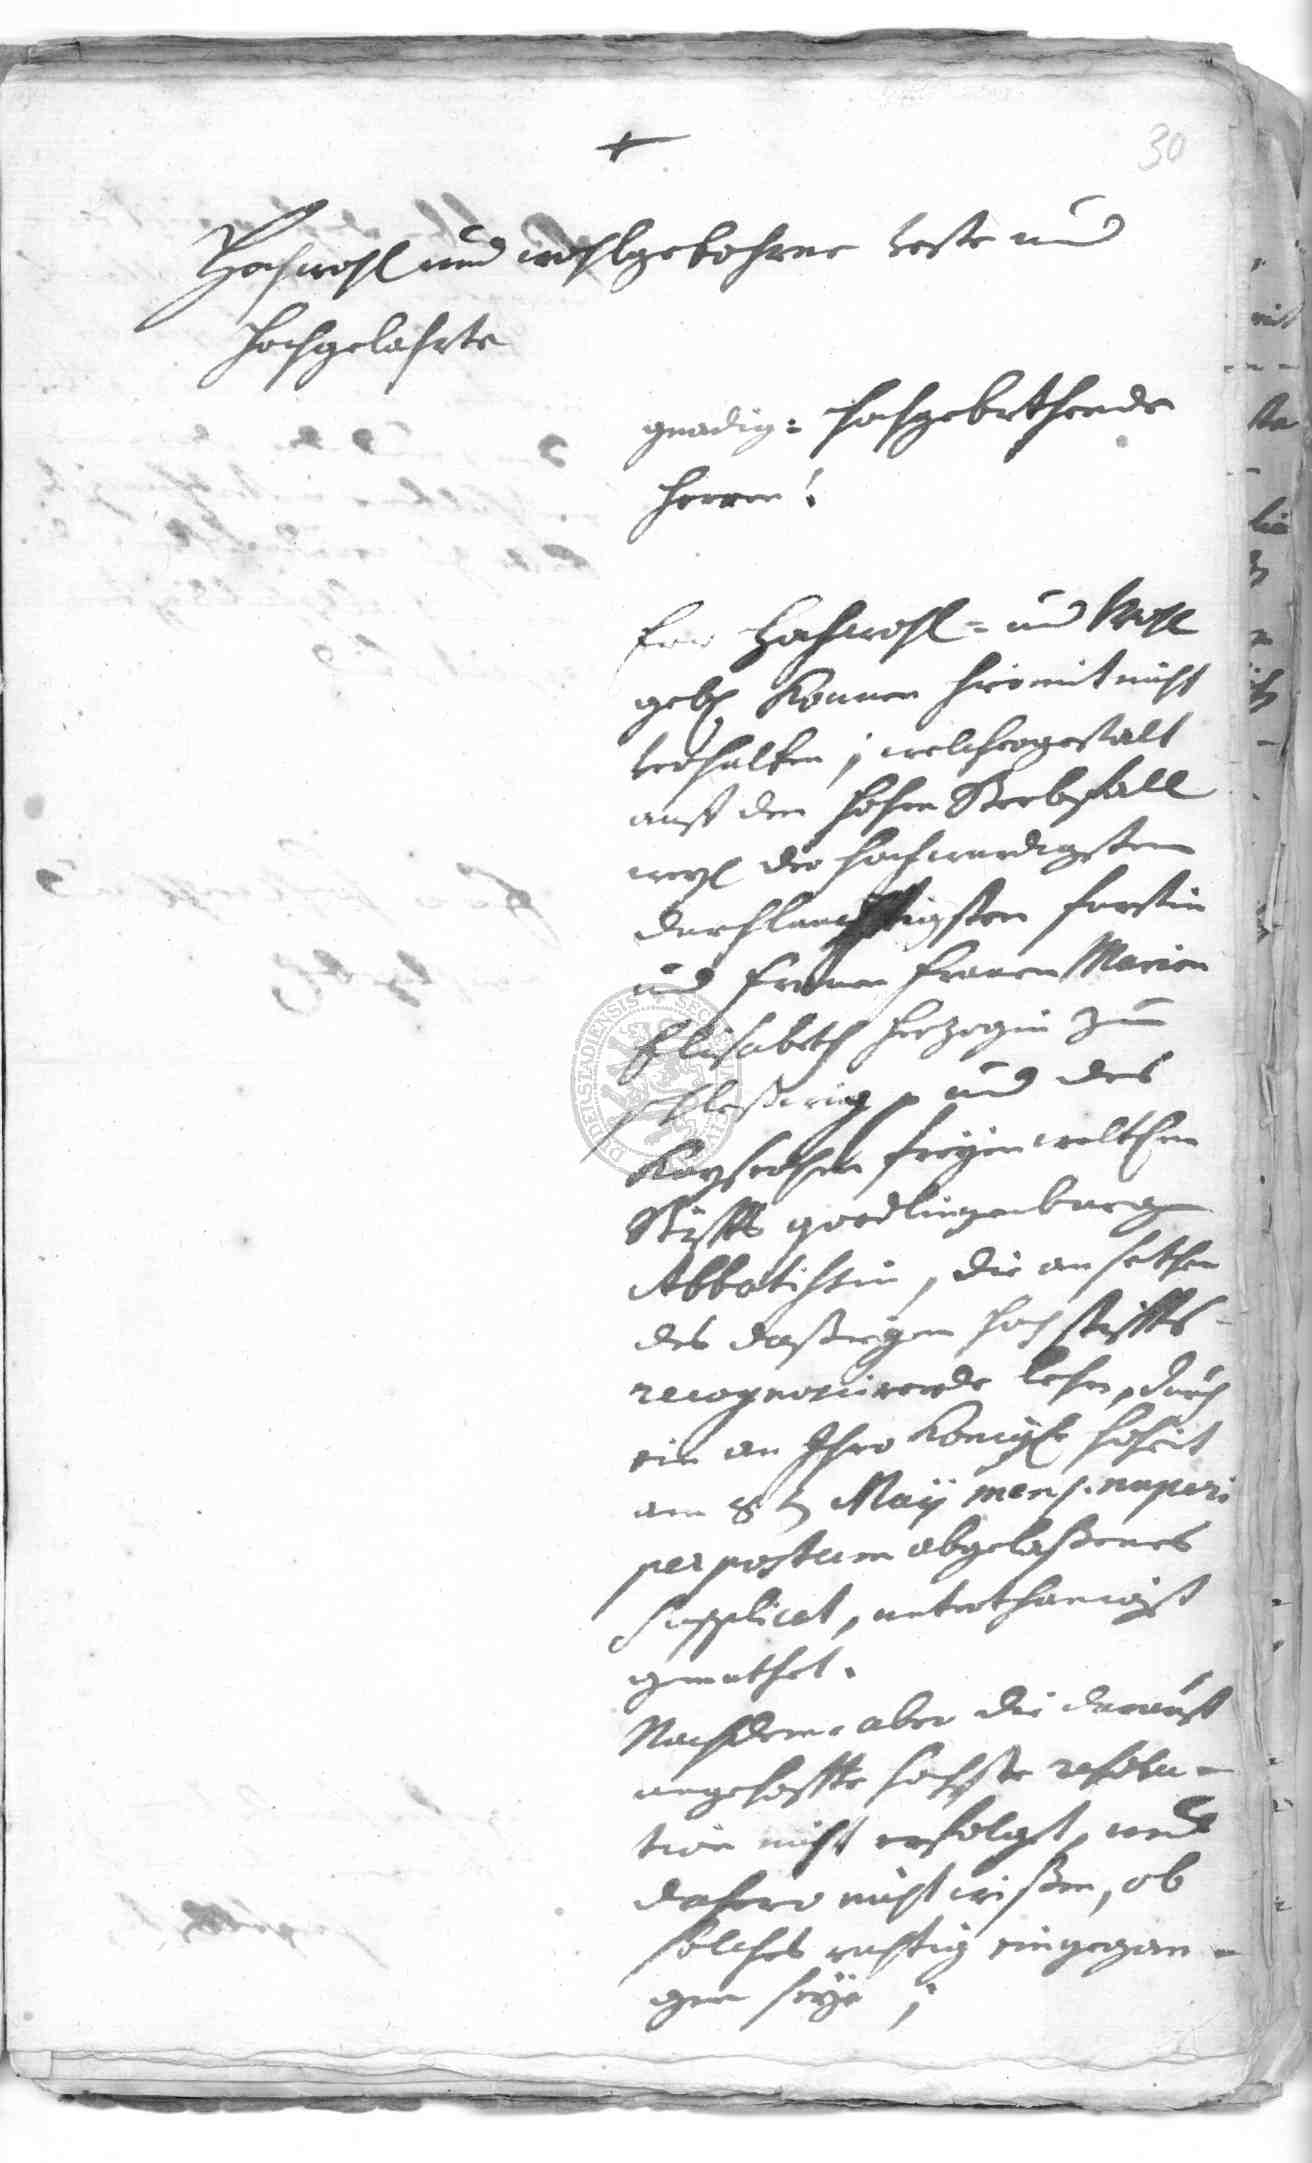 30
Hochwohl und wohlgebohrne veste und
hochgelahrte
gnädig: hochgebethende
Herren!
Ew Hochwohl= und Wohl
geb können hiermit nicht
verhalten, welchergestalt
auff den hohen Sterbfall
weyl der hochwürdigsten
durchlauchtigsten fürstin
und frauen frauen Marien
Elisabeth Hertzogin zu
schleßwig, und des
Kayserlichen freyen weltlichen
Stiffts quedlingenburg
Abbatißin, die an seithen
des dasigen hochstiffts
recognoscirende lehen, durch
ein an Ihro Königl hoheit
am 8t May mens. nuperi
per postam abgelaßenes
supplicat, unterthänigst
gemuthet.
Nachdeme aber die darauff
angehoffte höchste resolu-
tion nicht erfolget, und
dahero nicht wißen, ob
solches richtig eingegan-
gen seye;
PUDERSTADIENSIS SEC